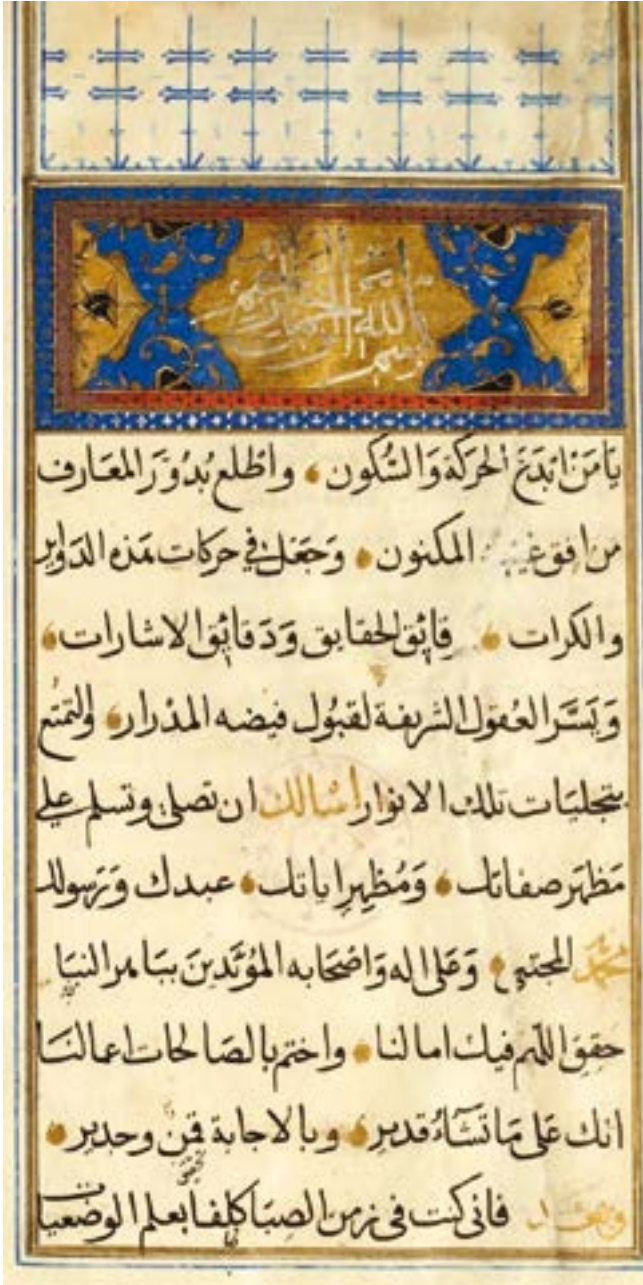 بسم الله الرحمن الرحيم
يَا مَنْ ابْدَعَ الحَرَكَةَ وَالسُّكون واطْلع بُدُوْرَ المعَارف
من افق غيبه المكنون وَجَعَل في حركات هَذه الدَواير
والكرات رقائق الحقايق وَدَقائق الاشارات
وَيَسَّرَ العُقول الشريفة لقبول فيضه المدْرار والتمتع
بتجليَات تلك الانوار اسْالك ان تصلى وتسلم على
مَظهَر صفاتك وَمُظهِر اياتك عبدك وَرَسولك
محمد المجتبى وَعَلى اله وَاصْحَابه المؤيَّدينَ
حقق اللهم فيك امالنا واختم بالصَالحات اعمالنَا
انك عَلى مَا تشَاءُ قدير وبالاجابة قمن وجدير
وبعد فانى كنت فى زمن الصبَا كلفا بعلم الوضعيات